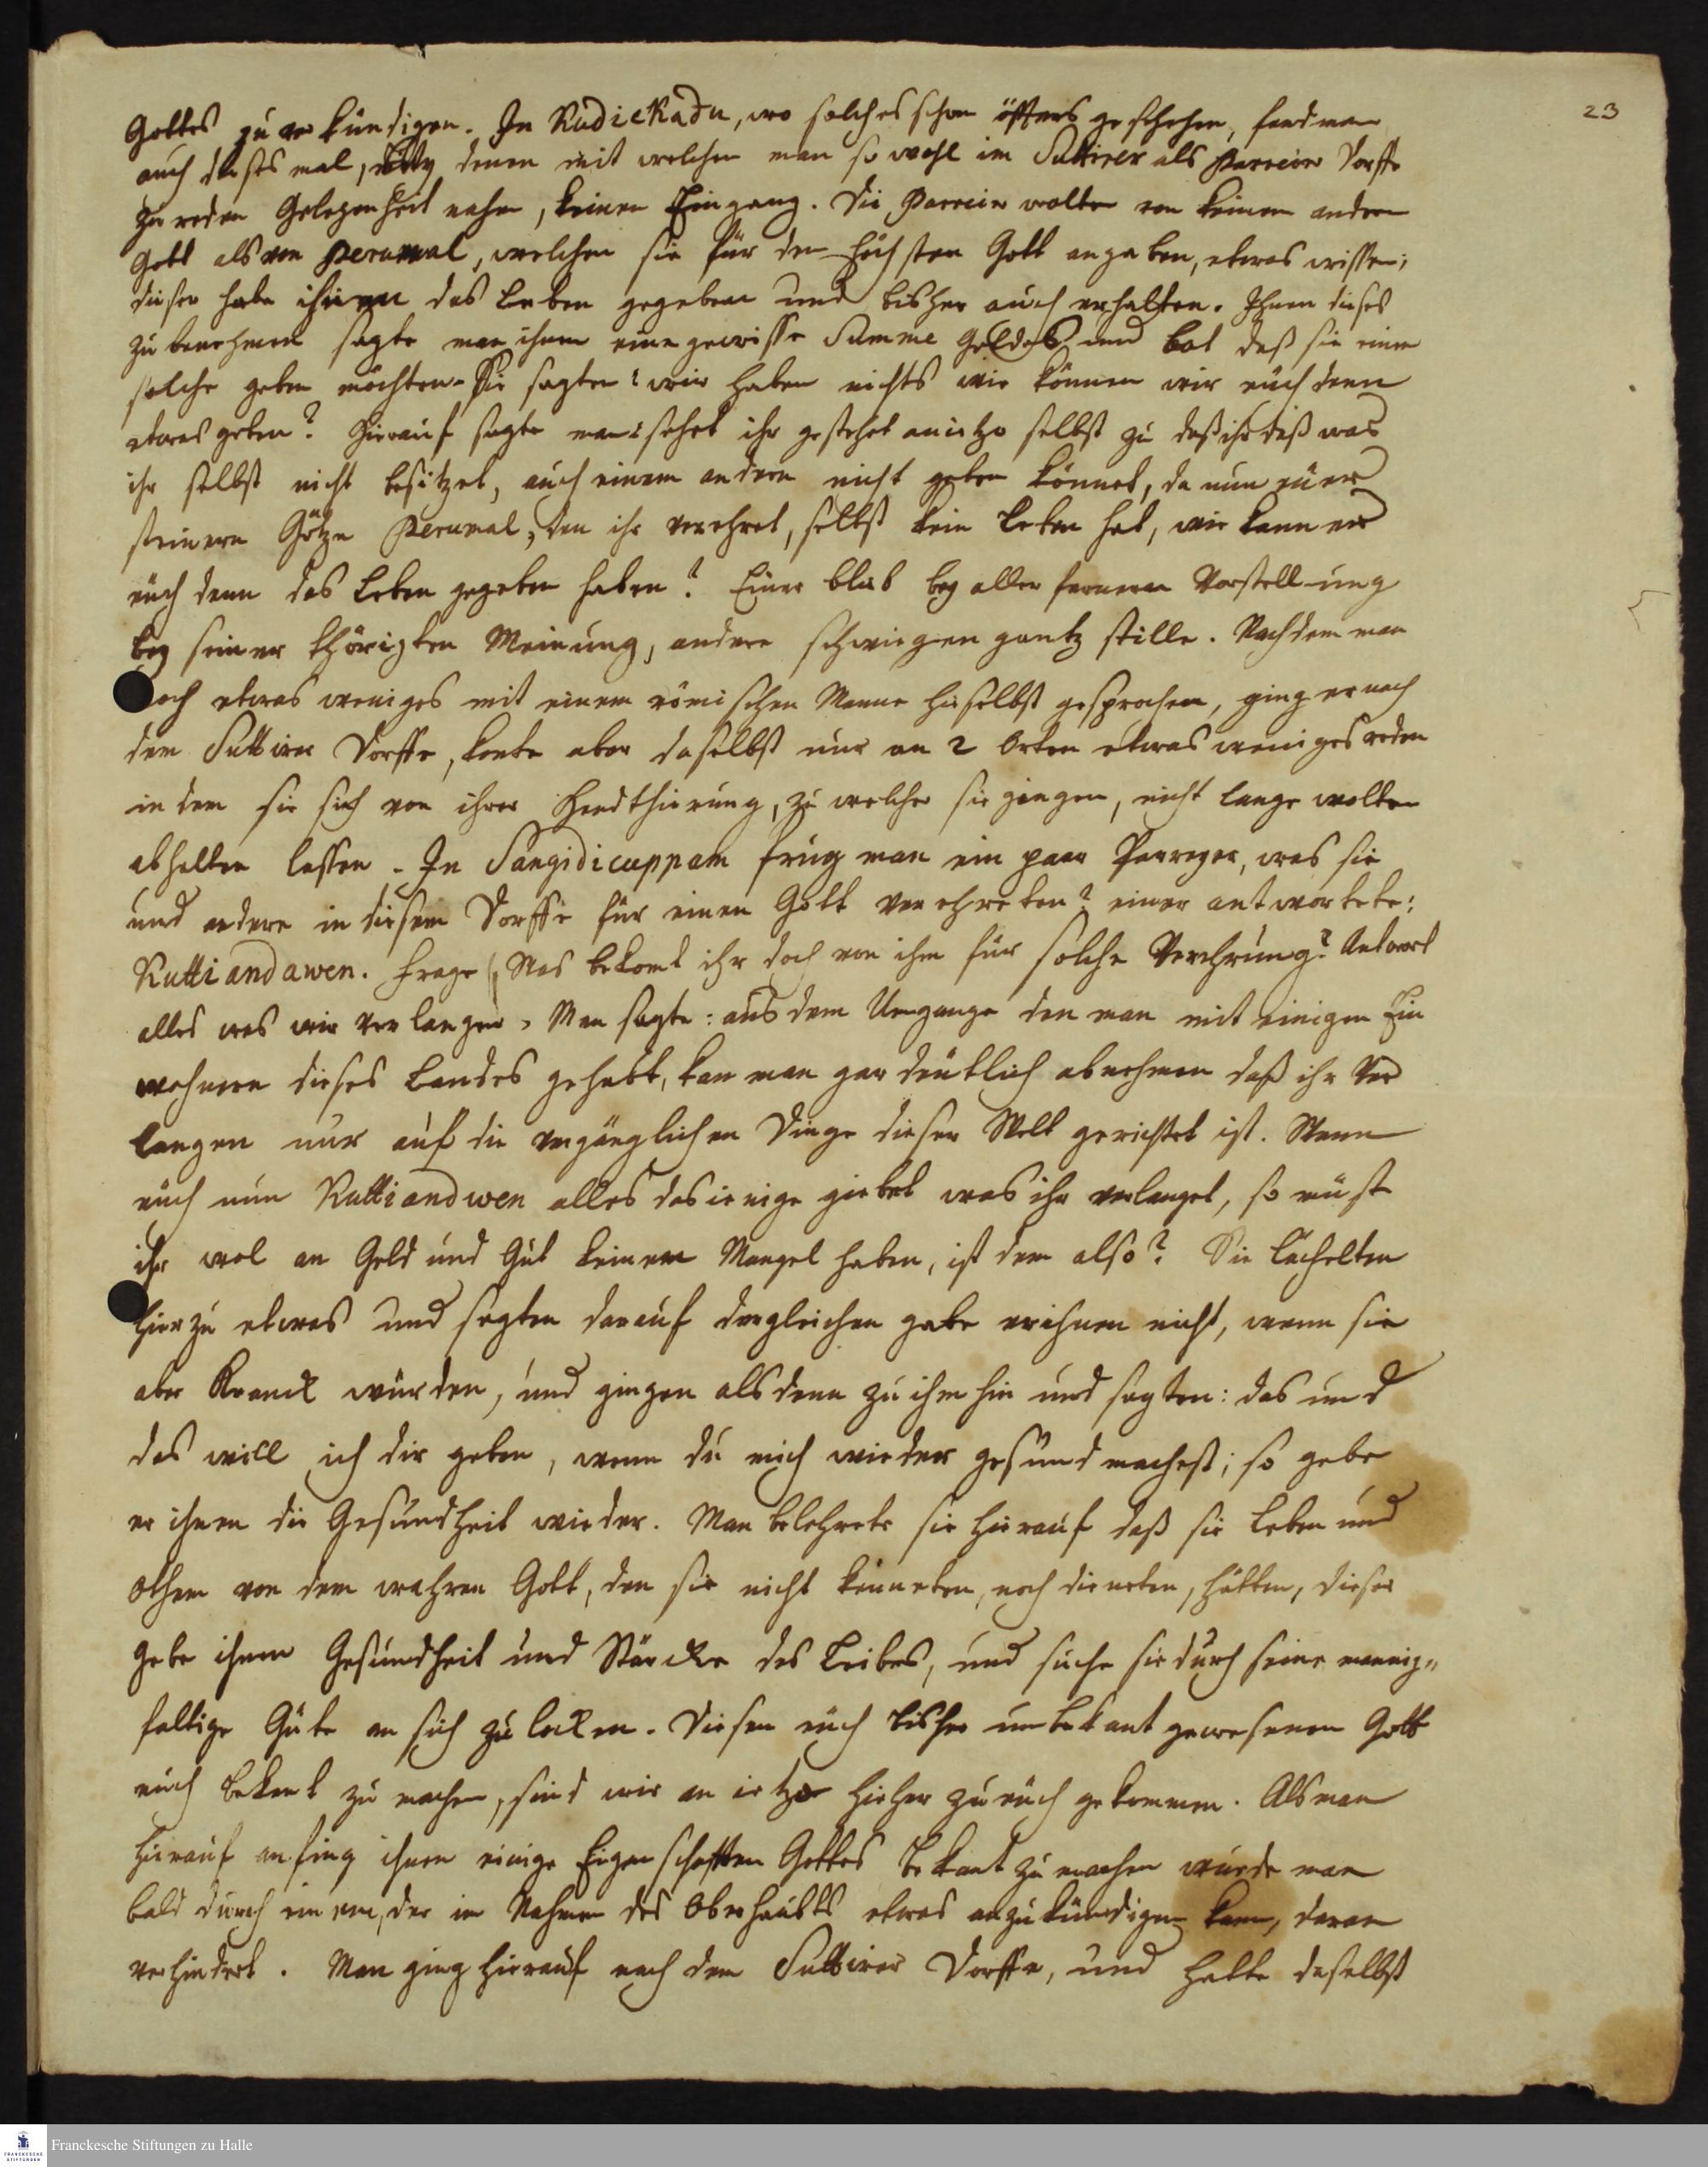 23
Gottes zu verkündigen. In Kudiekadu, wo solches schon öffters geschehen, fand man
auch dieses mal, bey denen mit welchen man so wohl im Suttirer als Parreier Dorffe
zu reden Gelegenheit nahm, keinen Eingang. Die Parreier wolten von keinem andern
Gott als von Perumal, welchen sie für den höchsten Gott angaben, etwas wissen;
dieser habe ihnen das Leben gegeben und bisher auch erhalten. Ihnen dieses
zu benehmen sagte man ihnen eine gewisse Summe Geldes und bat daß sie einem
solche geben möchten. Sie sagten: wir haben nichts wie können wir euch denn
etwas geben? Hierauf sagte man: sehet ihr gestehet anietzo selbst zu daß ihr daß was
ihr selbst nicht besitzet, auch einem andern nicht geben könnet, da nun euer
steinern Götze Perumal, den ihr verehret, selbst kein Leben hat, wie kann er
euch denn das Leben gegeben haben? Einer blieb bey aller fernern Vorstellung
bey seiner thörigten Meinung, andere schwiegen gantz stille. Nachdem man
noch etwas weniges mit einem römischen Manne hieselbst gesprochen, ging er nach
dem Suttirer Dorffe, konte aber daselbst nur an 2 Orten etwas weniges reden
in dem sie sich von ihrer Handthierung, zu welcher sie gingen, nicht lange wolten
abhalten lassen. In Sangidicuppam frug man ein paar Parreyer, was sie
und andere in diesem Dorffe für einen Gott verehreten? einer antwortete:
Kuttiandawen. Frage: Was bekomt ihr doch von ihm für solche Verehrung? Antwort
alles was wir verlangen. Man sagte: aus dem Umgange den man mit einigen Ein
wohnern dieses Landes gehabt, kan man gar deutlich abnehmen daß ihr Ver
langen nur auf die vergänglichen Dinge dieser Welt gerichtet ist. Wenn
euch nun Kuttiandwen alles dasienige giebet was ihr verlanget, so müst
ihr wol an Geld und Gut keinen Mangel haben, ist dem also? Sie lächelten
hierzu etwas und sagten darauf dergleichen gebe er ihnen nicht, wenn sie
aber Kranck würden, und gingen alsdenn zu ihm hin und sagten: das und
das will ich dir geben, wenn du mich wieder gesund machest; so gebe
er ihnen die Gesundheit wieder. Man belehrete sie hierauf daß sie Leben und
Othem von dem wahren Gott, den sie nicht kenneten, noch dieneten, hätten, dieser
gebe ihnen Gesundheit und Stärcke des Leibes, und suche sie durch seine mannig„
faltige Güte an sich zu locken. Diesen euch bisher unbekant gewesenen Gott
euch bekant zu machen, sind wir an ietzo hieher zu euch gekommen. Als man
hierauf anfing ihnen einige Eigenschafften Gottes bekant zu machen wurde man
bald durch einen, der im Nahmen des Oberhaubts etwas anzukündigen kam, daran
verhindert. Man ging hierauf nach dem Suttirer Dorffe, und hatte daselbst
Franckesche Stiftungen zu Halle
FRANCKESCHE
STIFTUNGEN